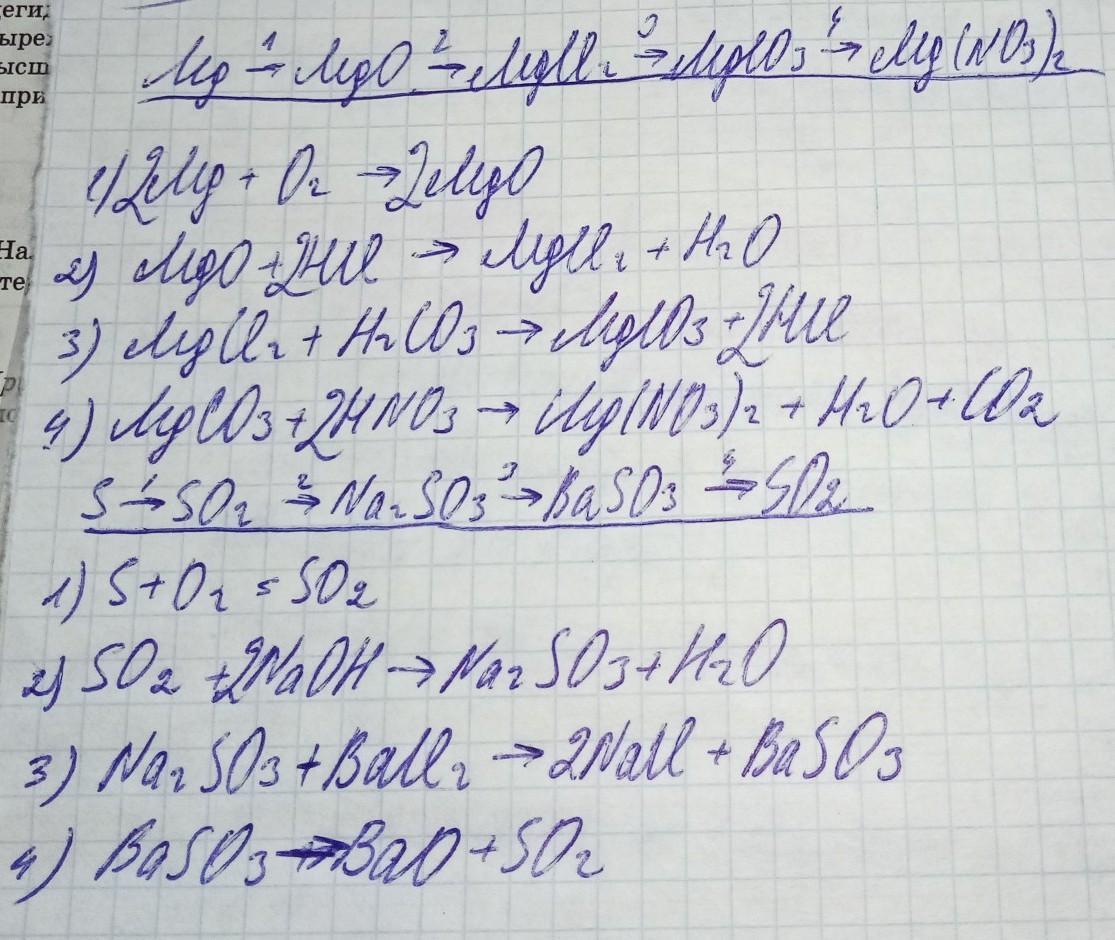 еги
ыре
ысш
при
На
те
Mg →1 MgO →2 MgCl₂ →3 MgCO₃ →4 Mg(NO₃)₂
1) 2Mg + O₂ → 2MgO
2) MgO + 2HCl → MgCl₂ + H₂O
3) MgCl₂ + H₂CO₃ → MgCO₃ + 2HCl
4) MgCO₃ + 2HNO₃ → Mg(NO₃)₂ + H₂O + CO₂
S →1 SO₂ →2 Na₂SO₃ →3 BaSO₃ →4 SO₂
1) S + O₂ = SO₂
2) SO₂ + 2NaOH → Na₂SO₃ + H₂O
3) Na₂SO₃ + BaCl₂ → 2NaCl + BaSO₃
4) BaSO₃ → BaO + SO₂